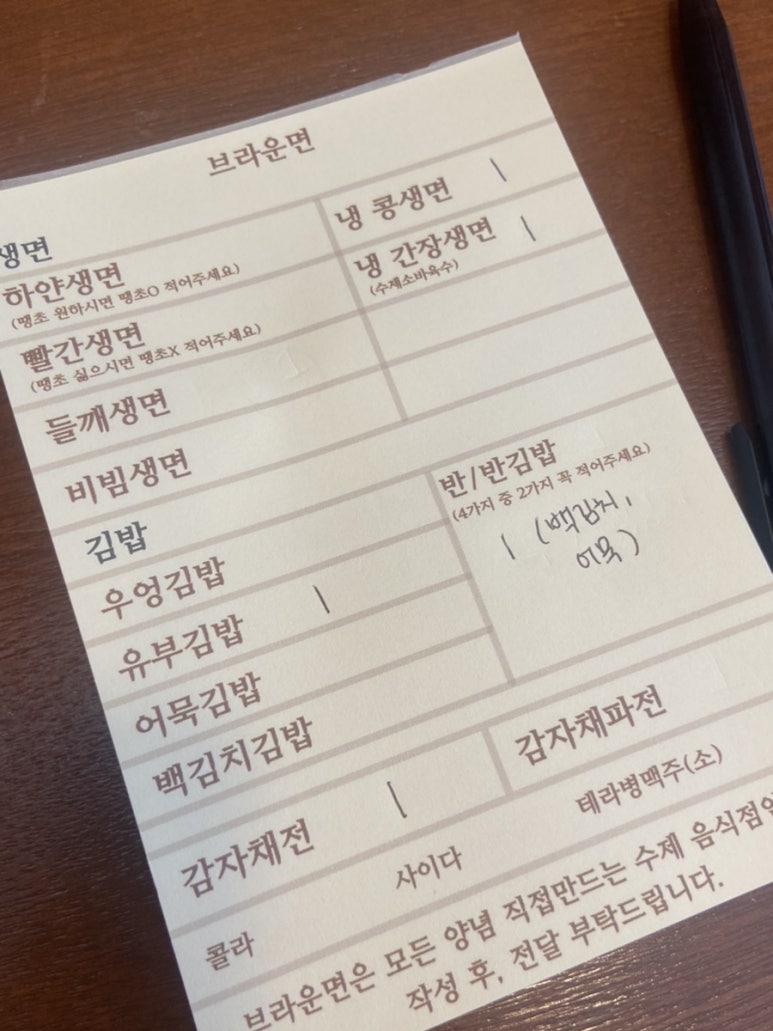 브라운면
생면
냉 콩생면 1
하얀생면
(땡초 원하시면 땡초O 적어주세요)
냉 간장생면 1
(수제소바육수)
빨간생면
(땡초 싫으시면 땡초X 적어주세요)
들깨생면
비빔생면
김밥
반/반김밥
(4가지 중 2가지 꼭 적어주세요)
1 (백김치,
어묵)
우엉김밥
유부김밥 1
어묵김밥
백김치김밥
감자채전 1
감자채파전
콜라
사이다
테라병맥주(소)
브라운면은 모든 양념 직접만드는 수제 음식점
작성 후, 전달 부탁드립니다.